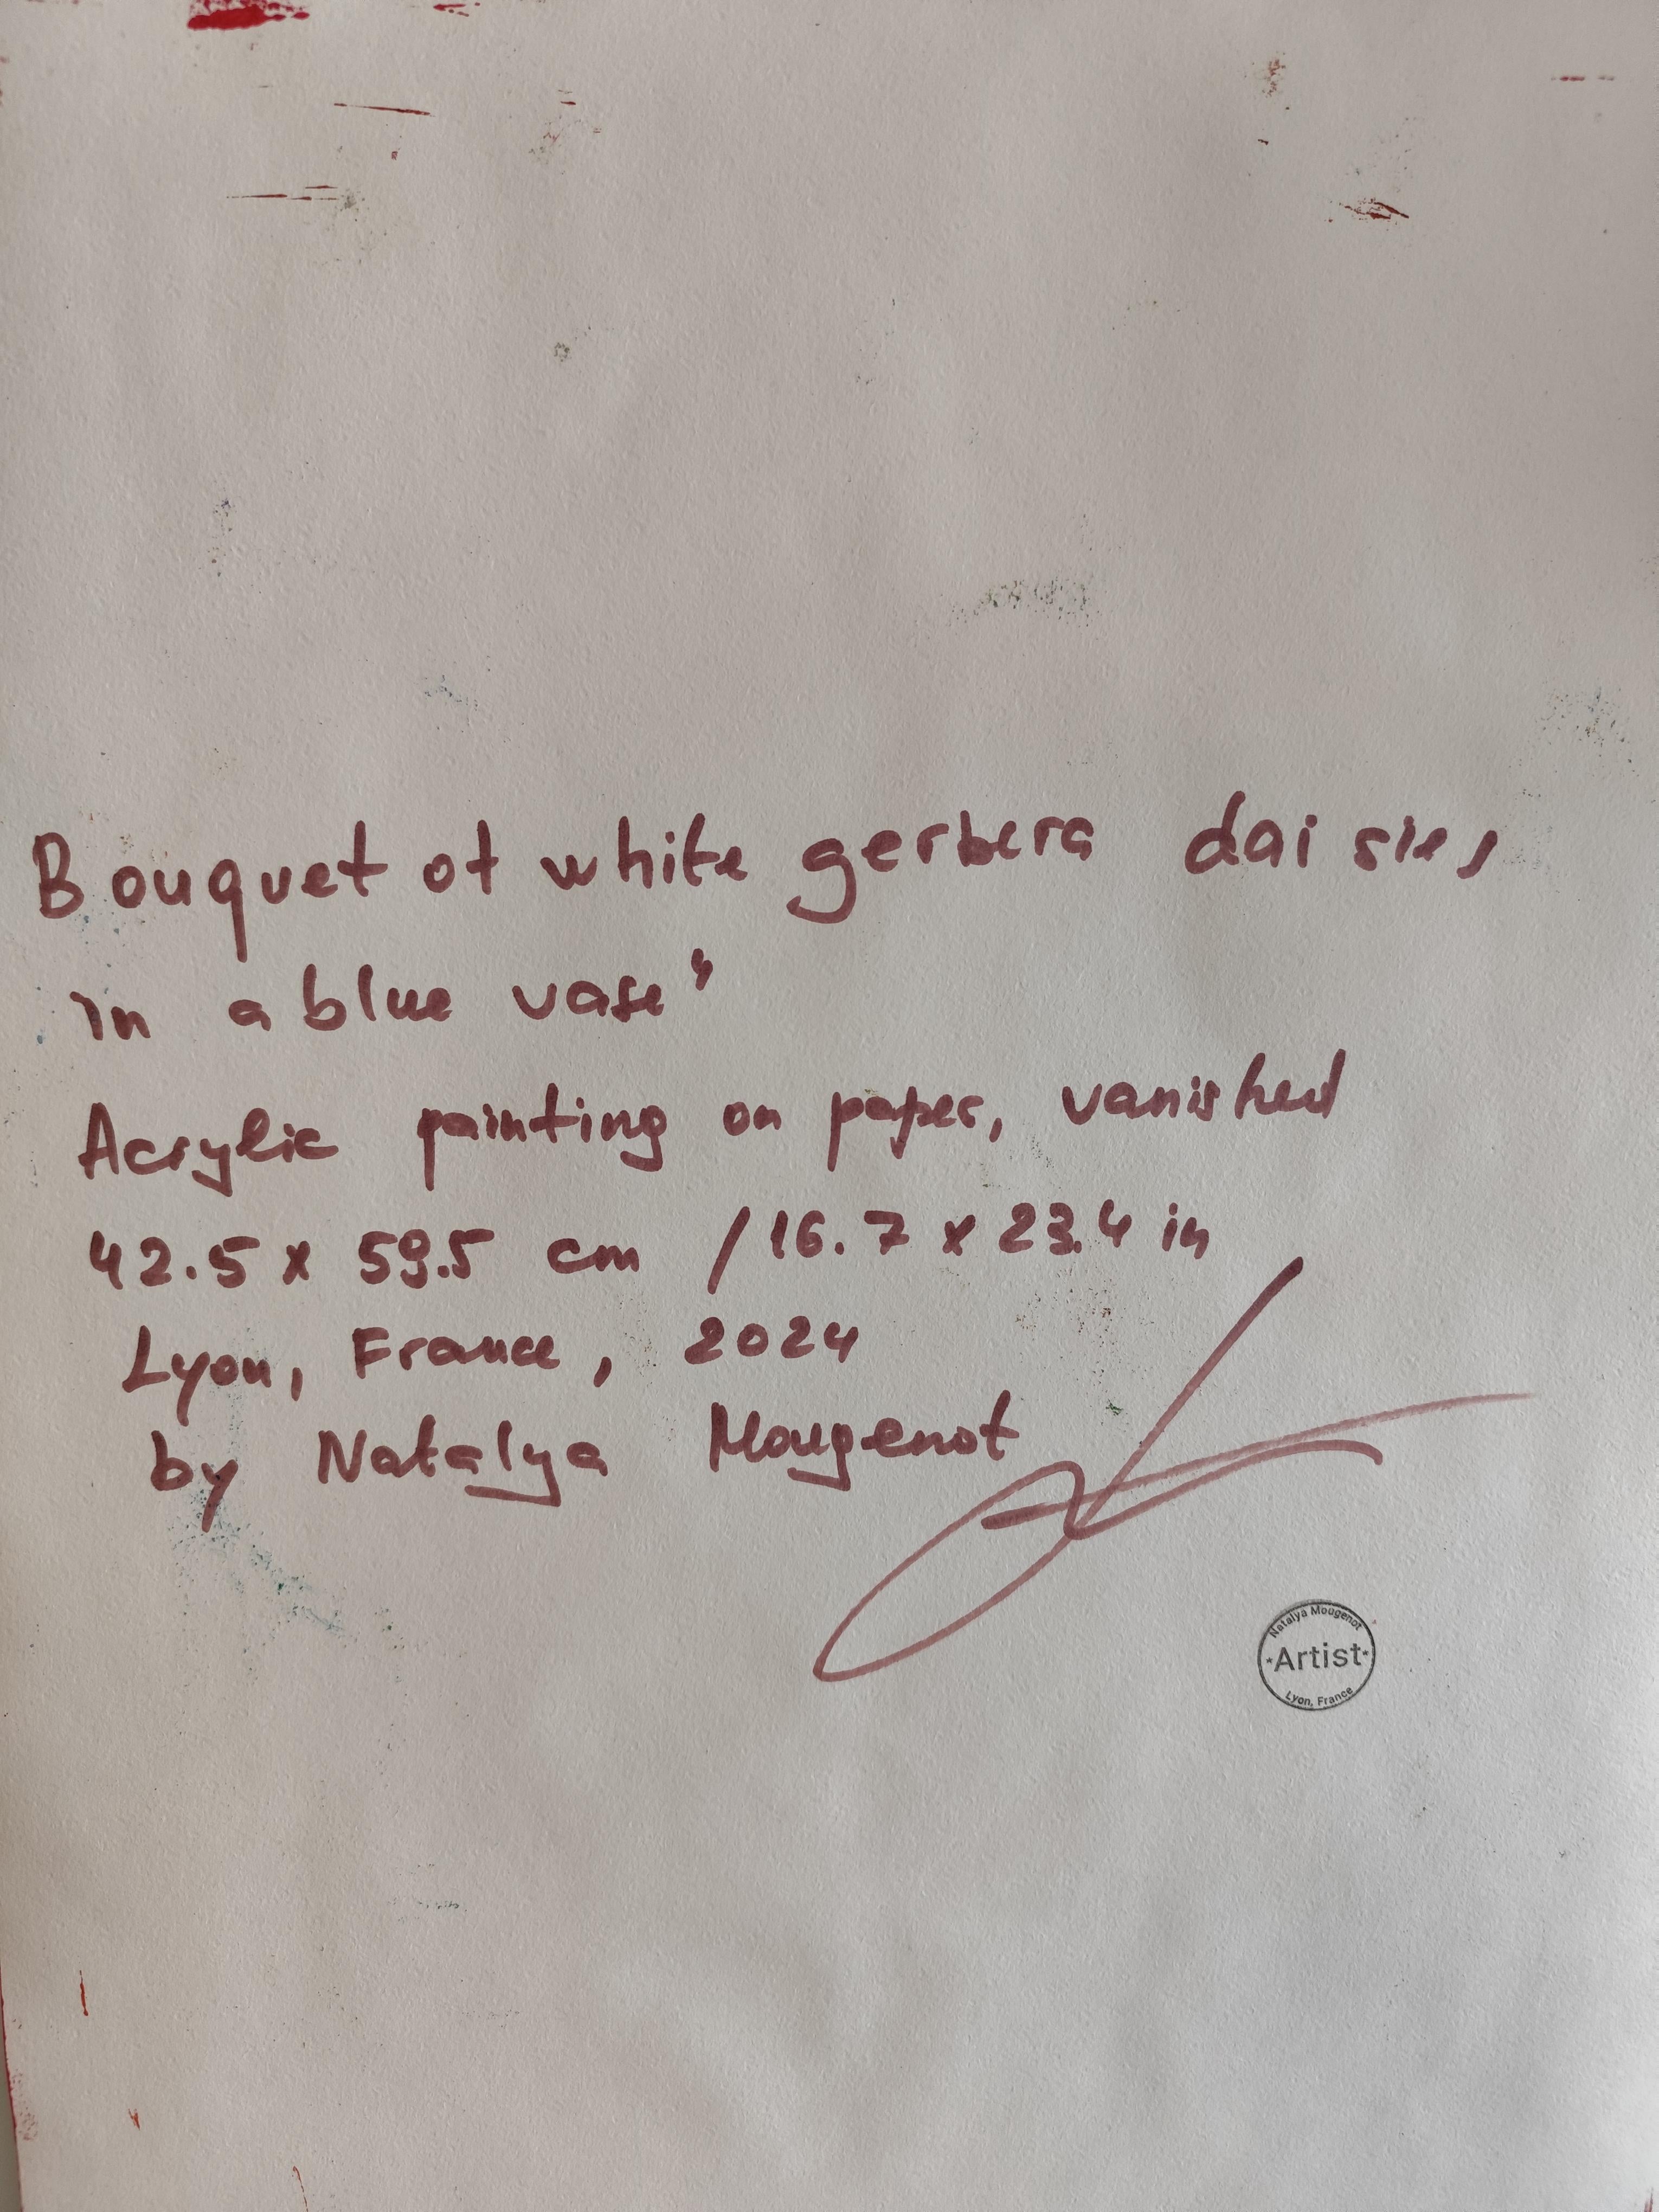 Bouquet of white gerbera daisies
in a blue vase"
Acrylic painting on paper, vanished
42.5 x 59.5 cm / 16.7 x 23.4 in
Lyon, France, 2024
by Natalya Mougenot
Natalya Mougenot
Artist
Lyon, France